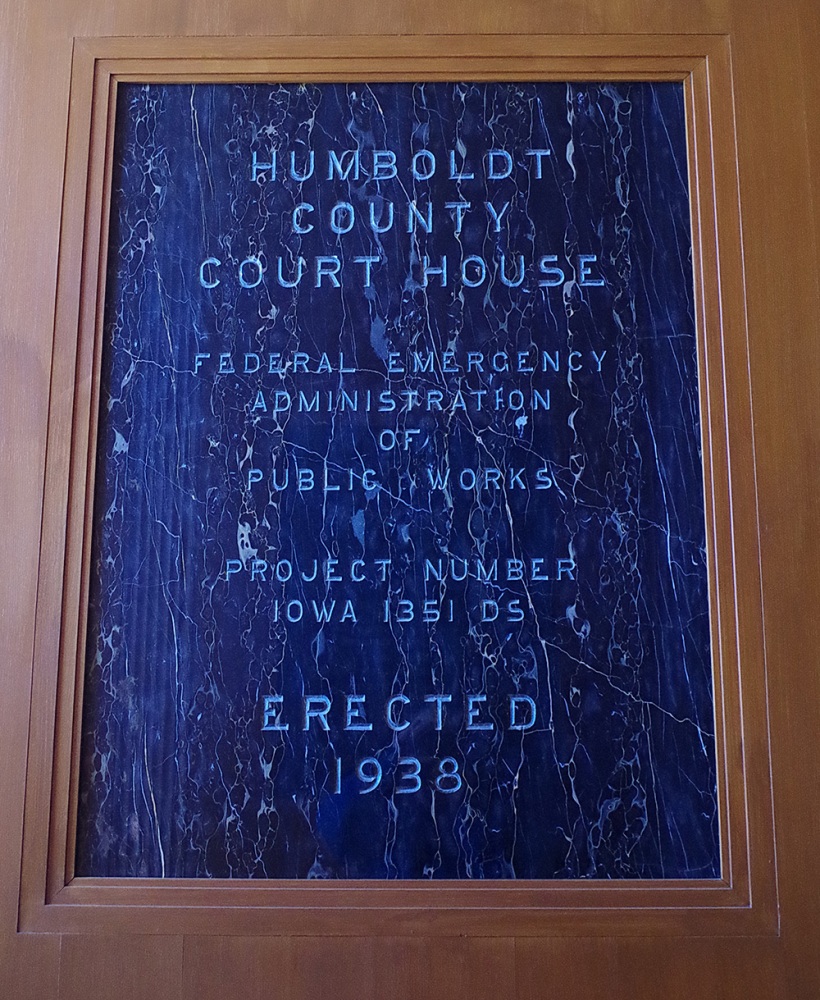 HUMBOLDT
COUNTY
COURT HOUSE
FEDERAL EMERGENCY
ADMINISTRATION
OF
PUBLIC WORKS
PROJECT NUMBER
IOWA 1351 DS
ERECTED
1938